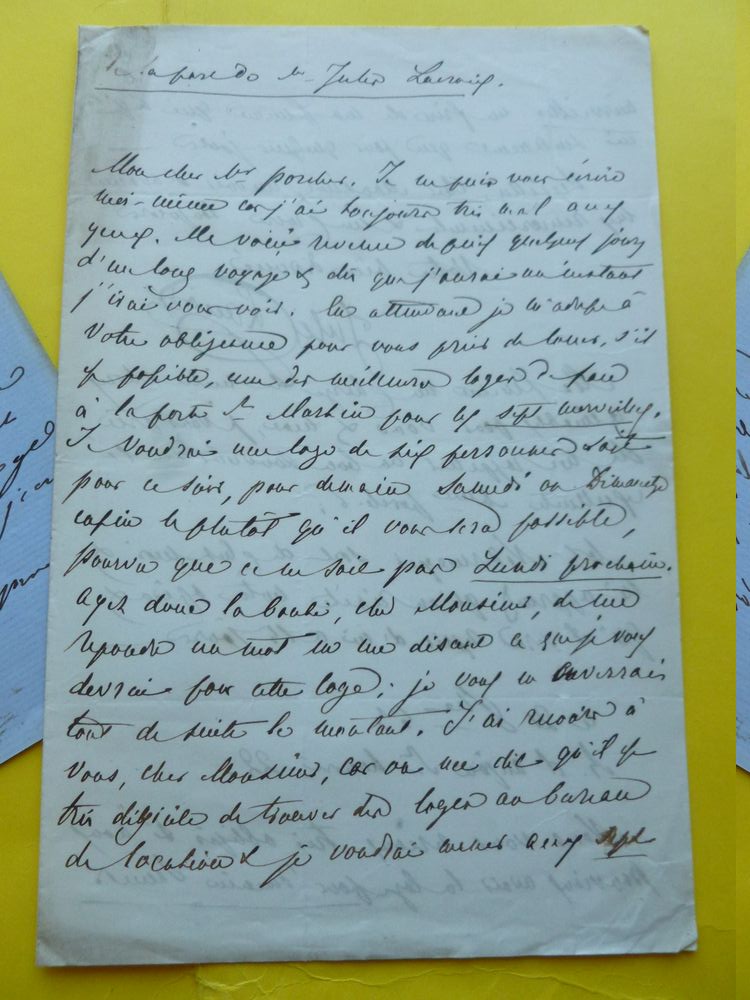 De la part de Mr Jules Lacroix.
Mon cher Mr porcher. Je ne puis vous écrire
moi-même car j'ai toujours très mal aux
yeux. Me voici revenu depuis quelques jours
d'un long voyage & dès que j'aurai un instant
j'irai vous voir. En attendant je m'adresse à
votre obligeance pour vous prier de louer, s'il
possible, une des meilleures loges de face
à la porte St Martin pour les sept merveilles.
Je voudrai une loge de six personnes soit
pour ce soir, pour demain Samedi ou Dimanche
enfin le plutôt qu'il vous sera possible,
pourvu que ce ne soit pas Lundi prochain.
ayez donc la bonté, cher Monsieur, de me
repondre un mot en me disant ce que je vous
devrai pour cette loge; je vous en enverrais
tout de suite le montant. J'ai recours à
vous, cher Monsieur, car on me dit qu'il
très difficile de trouver des loges au bureau
de location & je voudrai mener aux sept